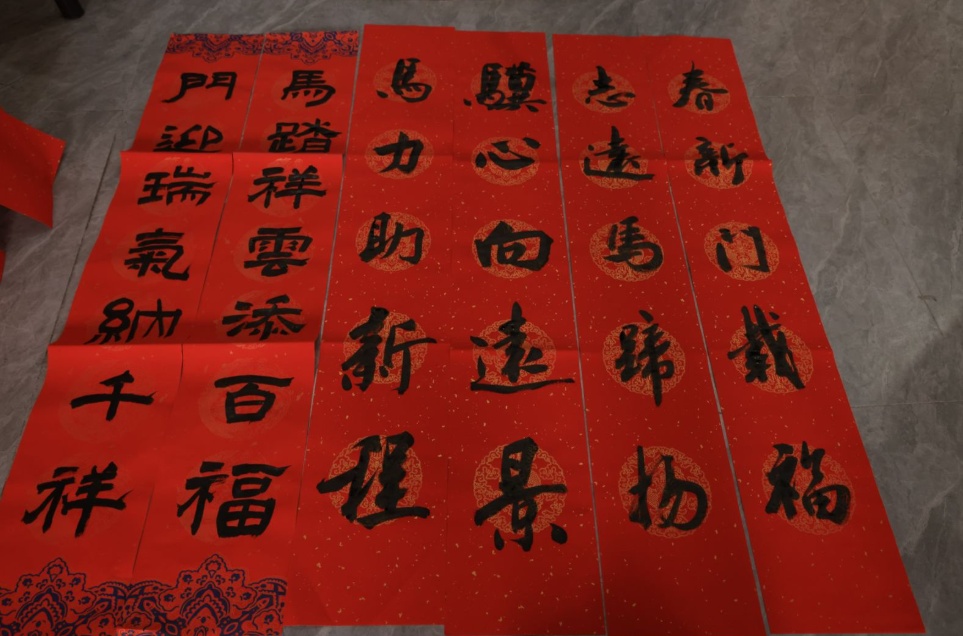 春新门載福
志遠馬蹄扬
驥心向遠景
馬力助新程
馬踏祥雲添百福
門迎瑞氣納千祥